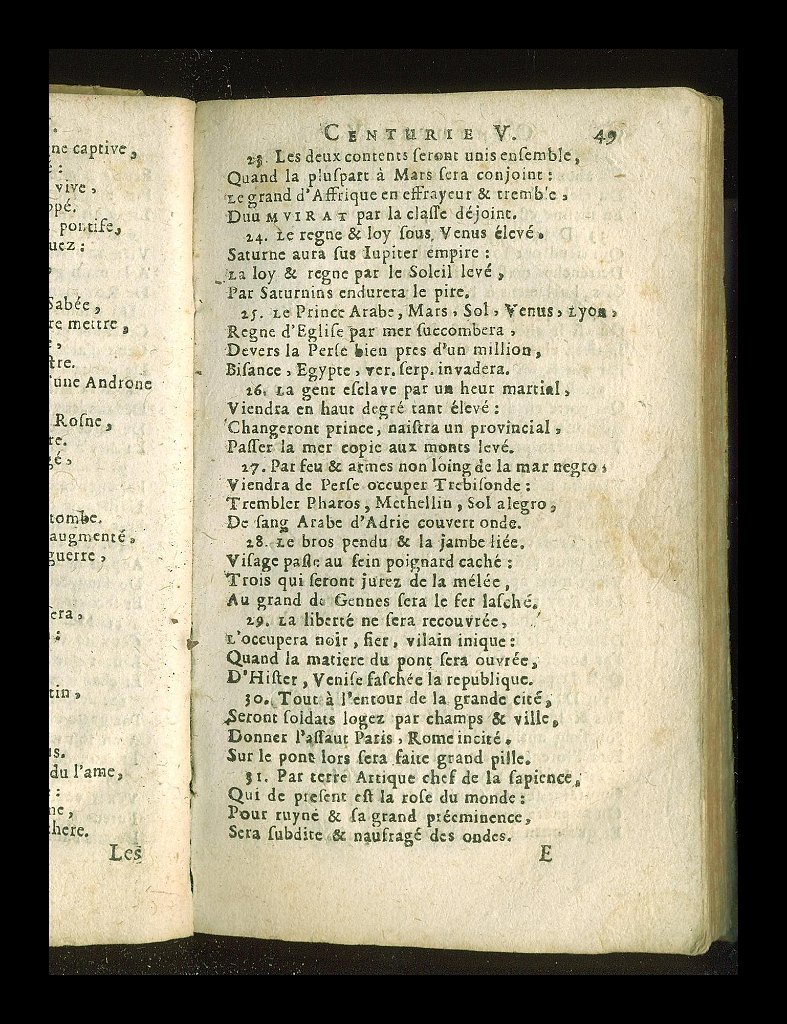 ne captive,
:
vive,
ppé.
pontife,
uez:
,
Sabée,
re mettre,
,
tre.
une Androne
Rosne,
re.
gé,
tombe.
augmenté,
guerre,
era,
:
tin,
s.
du l'ame,
:
ne,
chere.
Les
CENTURIE V. 49
23. Les deux contents ſeront unis enſemble,
Quand la pluſpart à Mars ſera conjoint:
Le grand d'Affrique en effrayeur & tremble,
Duu MVIRAT par la claſſe déjoint.
24. Le regne & loy ſous Venus élevé.
Saturne aura ſus Iupiter empire:
La loy & regne par le Soleil levé,
Par Saturnins endurera le pire.
25. Le Prince Arabe, Mars, Sol, Venus, Lyon,
Regne d'Egliſe par mer ſuccombera,
Devers la Perſe bien pres d'un million,
Biſance, Egypte, ver. ſerp. invadera.
26. La gent eſclave par un heur martial,
Viendra en haut degré tant élevé:
Changeront prince, naiſtra un provincial,
Paſſer la mer copie aux monts levé.
27. Par feu & armes non loing de la mar negro,
Viendra de Perſe occuper Trebiſonde:
Trembler Pharos, Methellin, Sol alegro,
De ſang Arabe d'Adrie couvert onde.
28. Le bros pendu & la jambe liée.
Viſage paſle au ſein poignard caché:
Trois qui ſeront jurez de la mélée,
Au grand de Gennes ſera le fer laſché.
29. La liberté ne ſera recouvrée,
L'occupera noir, fier, vilain inique:
Quand la matiere du pont ſera ouvrée,
D'Hiſter, Veniſe faſchée la republique.
30. Tout à l'entour de la grande cité,
Seront ſoldats logez par champs & ville,
Donner l'aſſaut Paris, Rome incité.
Sur le pont lors ſera faite grand pille.
31. Par terre Artique chef de la ſapience,
Qui de preſent eſt la roſe du monde:
Pour ruyné & ſa grand préeminence,
Sera ſubdite & naufragé des ondes.
E